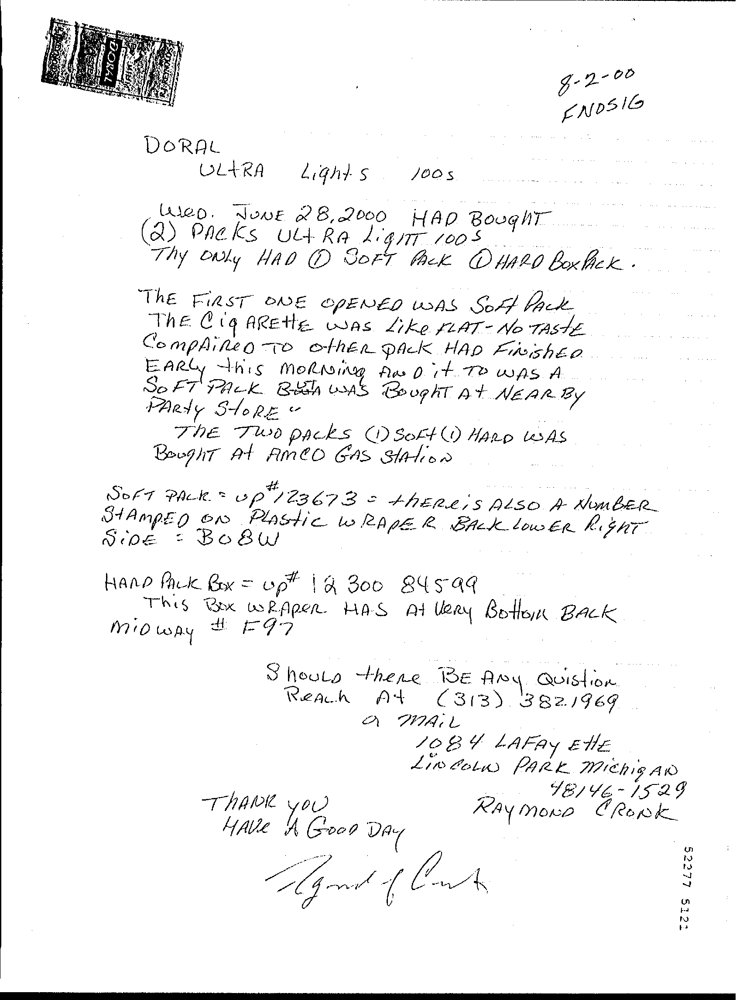 DORAL
8-2-00
FNDSIG
DORAL
ULtRA Lights 100s
Wed. JUNE 28, 2000 HAD BOUGHT
(2) PACKS ULtRA LigHT 100s
Thy ONLy HAD ① SOFT PACK ① HARD Box PACK.
THE FIRST ONE OPENED WAS Soft Pack
THE CigAREttE WAS Like FLAT-NO TASTE
CompAiReD TO OtHER PACK HAD FiNisHED
EARLy this MORNiNg AND it TO WAS A
SOFT PACK WAS BougHT At NEAR By
PARty StoRE "
THE TWO PACKS (1) Soft (1) HARD WAS
BougHT At AMCO GAS StAtioN
SOFT PACK = UP# 123673 = tHERE iS ALSO A NUMBER
StAMPED ON PLAStic WRAPER BACK LOWER RigHT
SiDE = BOBW
HARD PACK Box = UP# 12300 84599
This Box WRAPER HAS At VERy Bottom BACK
MiDWAy # F97
SHOULD there BE ANy QuistioN
REACH At (313) 382.1969
or MAiL
1084 LAFAyEttE
LiNCOLN PARK MicHigAN
48146-1529
RAYMOND CRONK
THANK yOU
HAVE A GOOD DAy
52277 5121